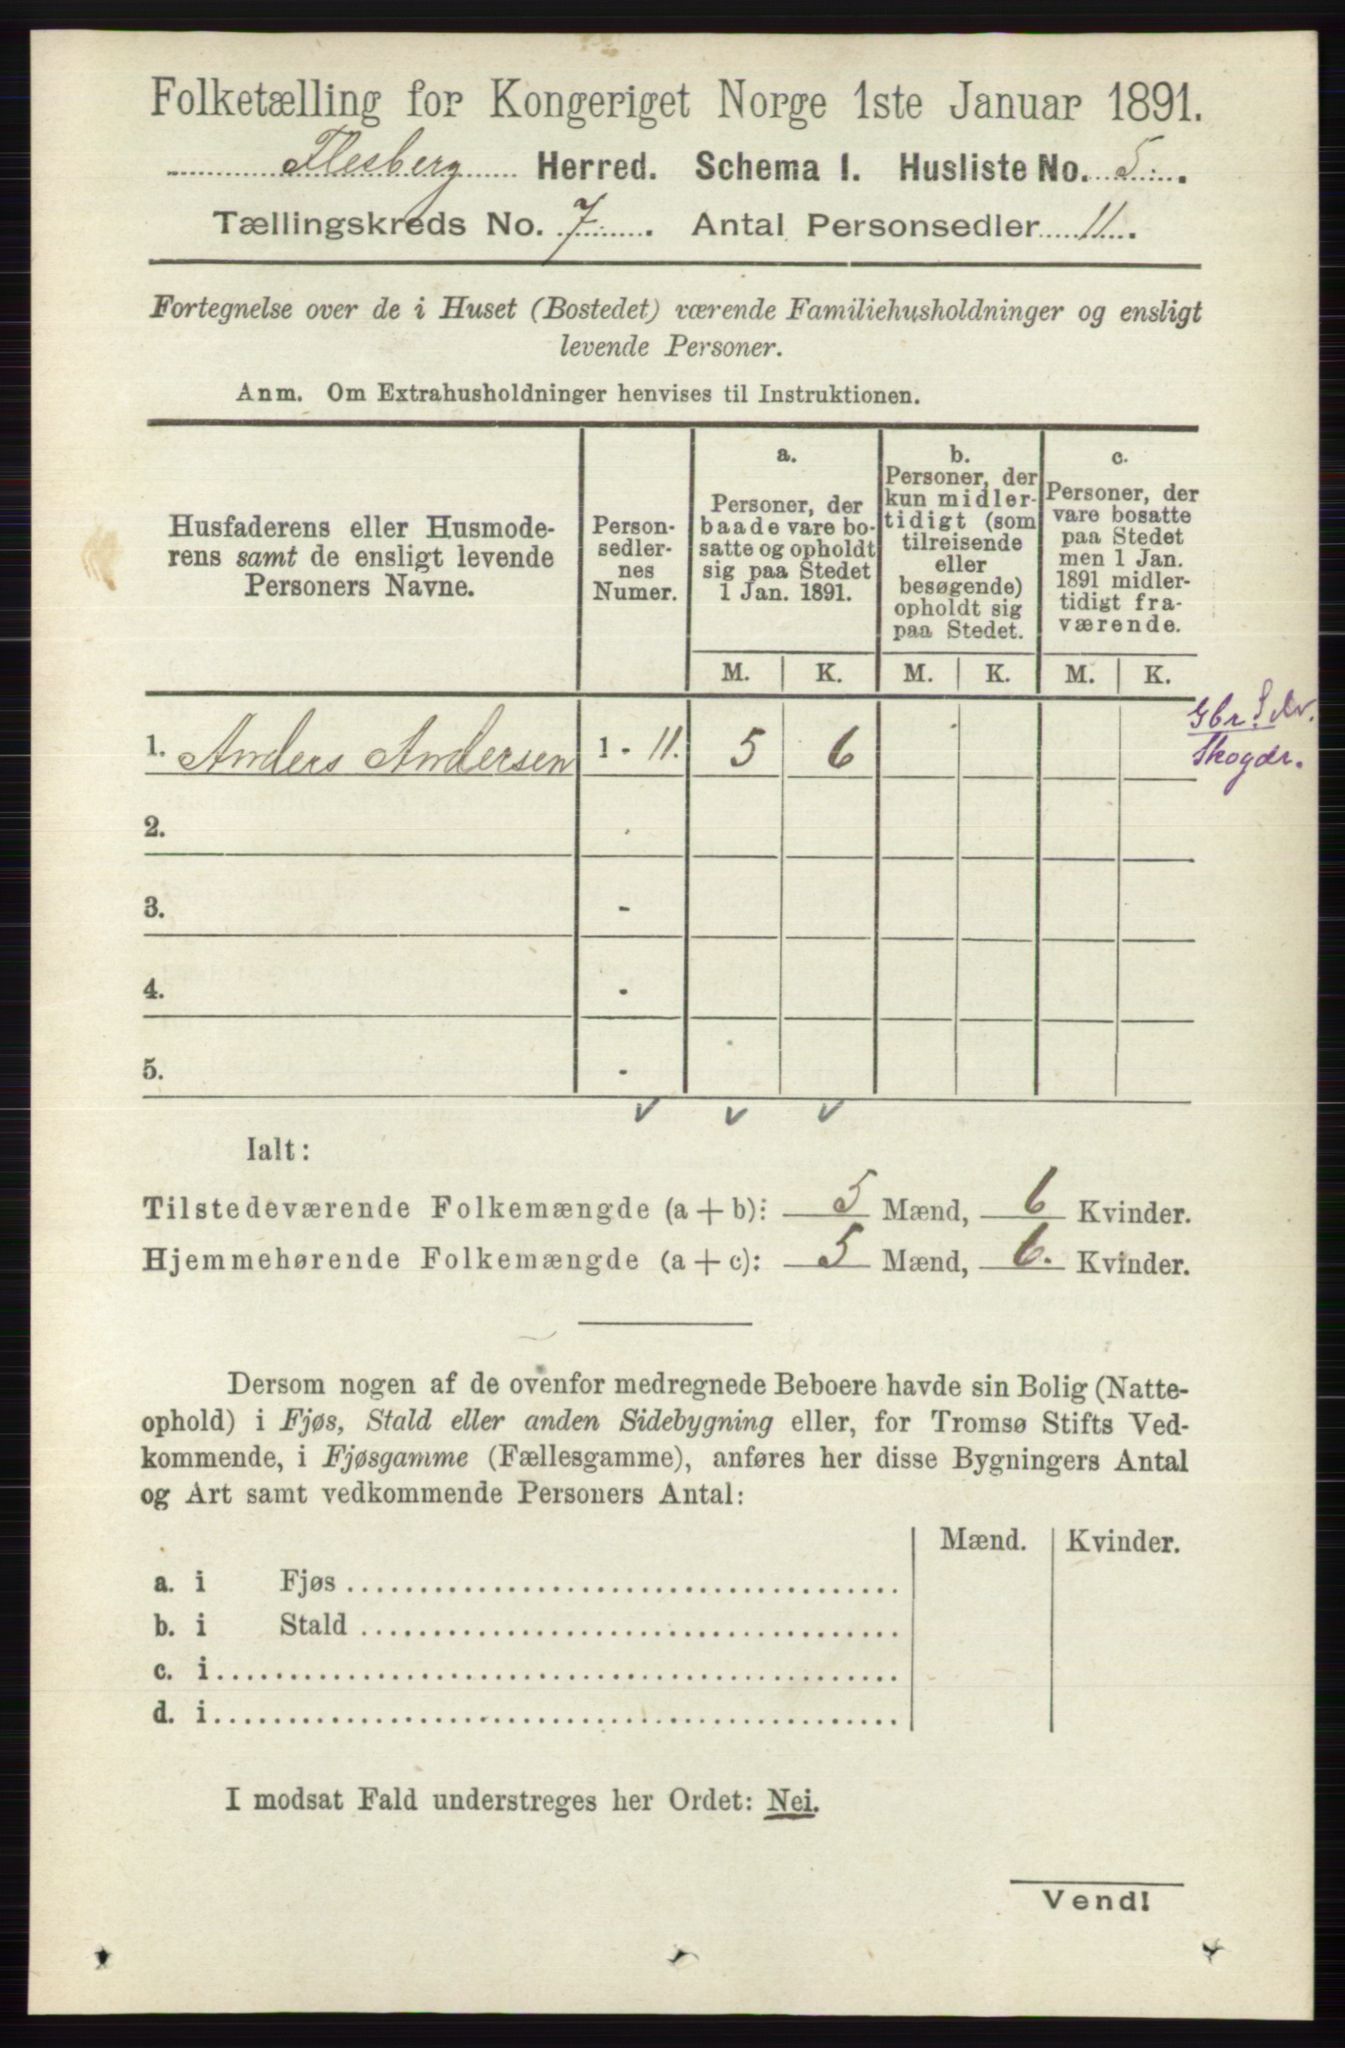 Folketælling for Kongeriget Norge 1ste Januar 1891.
Flesberg Herred. Schema I. Husliste No. 5.
Tællingskreds No. 7. Antal Personsedler 11.
Fortegnelse over de i Huset (Bostedet) værende Familiehusholdninger og ensligt
levende Personer.
Anm. Om Extrahusholdninger henvises til Instruktionen.
Husfaderens eller Husmode-
rens samt de ensligt levende
Personers Navne.
Person-
sedler-
nes
Numer.
a.
Personer, der
baade vare bo-
satte og opholdt
sig paa Stedet
1 Jan. 1891.
b.
Personer, der
kun midler-
tidigt (som
tilreisende
eller
besøgende)
opholdt sig
paa Stedet.
c.
Personer, der
vare bosatte
paa Stedet
men 1 Jan.
1891 midler-
tidigt fra-
værende.
M. K. M. K. M. K.
1. Anders Andersen 1 - 11. 5 6
Gbr.
Skogdr.
2.
3. -
4. -
5. -
Ialt:
Tilstedeværende Folkemængde (a + b): 5 Mænd, 6 Kvinder.
Hjemmehørende Folkemængde (a + c): 5 Mænd, 6. Kvinder.
Dersom nogen af de ovenfor medregnede Beboere havde sin Bolig (Natte-
ophold) i Fjøs, Stald eller anden Sidebygning eller, for Tromsø Stifts Ved-
kommende, i Fjøsgamme (Fællesgamme), anføres her disse Bygningers Antal
og Art samt vedkommende Personers Antal:
Mænd. Kvinder.
a. i Fjøs
b. i Stald
c. i
d. i
I modsat Fald understreges her Ordet: Nei.
Vend!